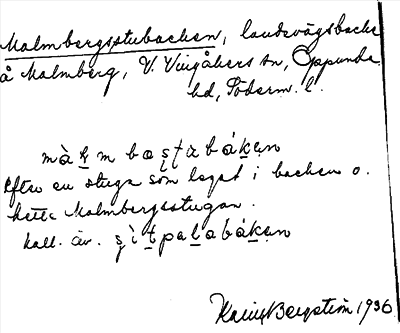 Malmbergsstubacken, landsvägsbacke
å Malmberg, V. Vingåkers sn, Oppunda
hd, Söderm. l.
Efter en stuga som legat i backen o.
hette Malmbergsstugan.
kall. äv.
Bergström 1936